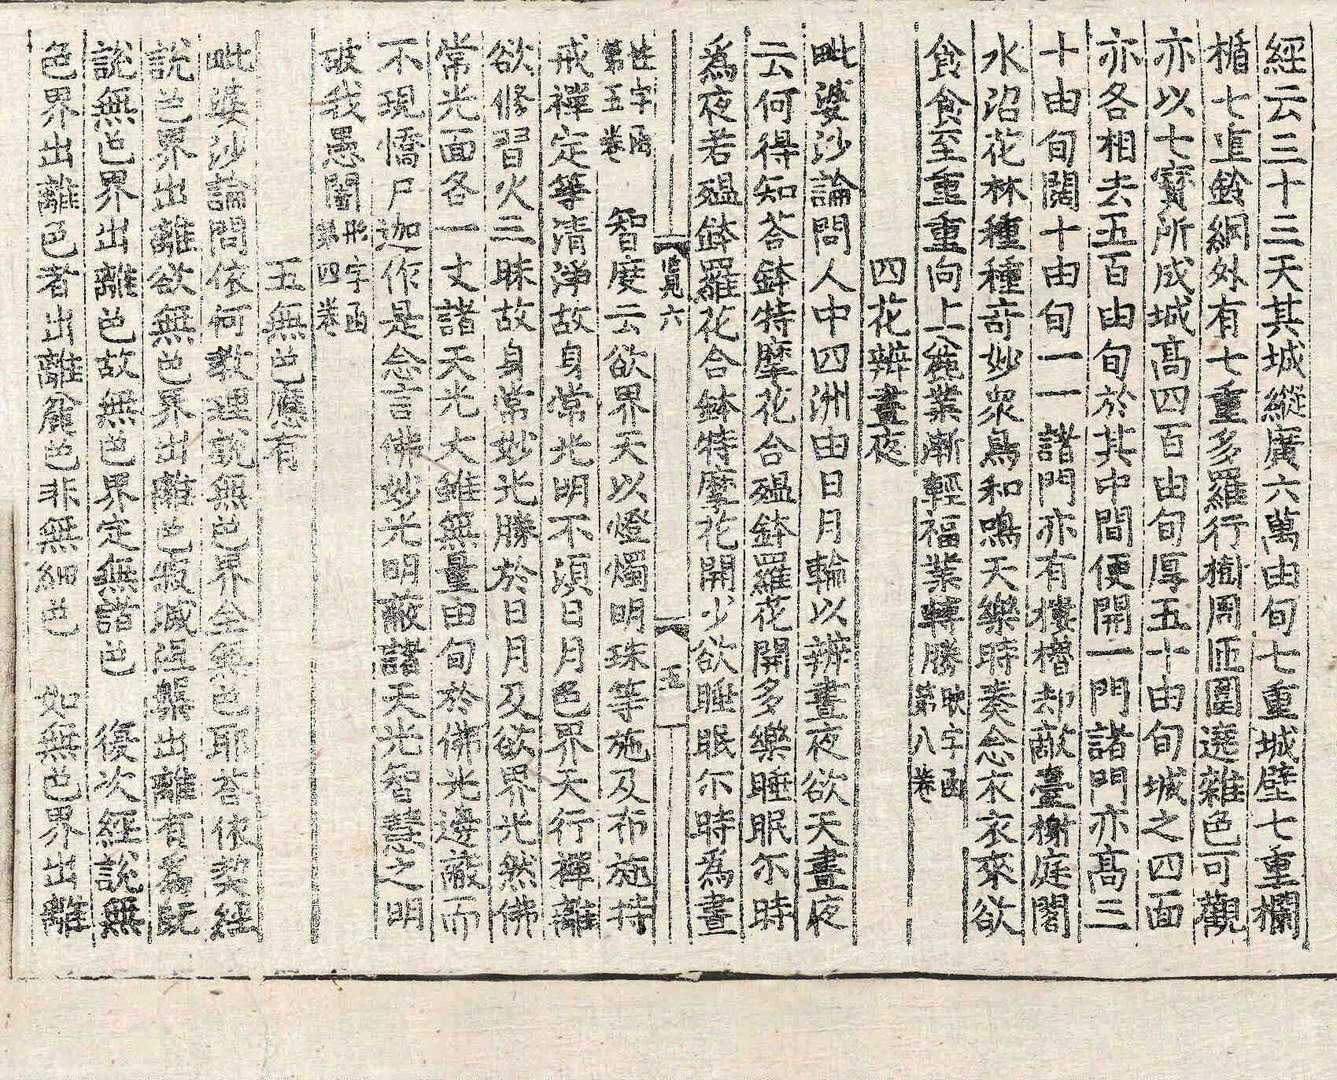 經云三十三天其城縱廣六萬由旬七重城壁七重欄
楯七重鈴網外有七重多羅行樹周匝圍遶雜色可觀
亦以七寶所成城高四百由旬厚五十由旬城之四面
亦各相去五百由旬於其中間便開一門諸門亦高三
十由旬闊十由旬一一諸門亦有樓櫓却敵臺榭庭閣
水沼花林種種奇妙衆鳥和鳴天樂時奏念衣衣來欲
食食至重重向上麁業漸輕福業轉勝
映字函第八卷
四花辨晝夜
毗婆沙論問人中四洲由日月輪以辨晝夜欲天晝夜
云何得知荅鉢特摩花合殟鉢羅花開多樂睡眠尒時
爲夜若殟鉢羅花合鉢特摩花開少欲睡眠尒時爲晝
覽六
五
性字函第五卷
智度云欲界天以燈燭明珠等施及布施持
戒禪定等清淨故身常光明不須日月色界天行禪離
欲修習火三昧故身常妙光勝於日月及欲界光然佛
常光面各一丈諸天光大雖無量由旬於佛光邊蔽而
不現憍尸迦作是念言佛妙光明蔽諸天光智慧之明
破我愚闇
形字函第四卷
五無色應有
毗婆沙論問依何教理說無色界全無色耶荅依契經
說色界出離欲無色界出離色寂滅涅槃出離有爲旣
說無色界出離色故無色界定無諸色 復次經說無
色界出離色者出離麁色非無細色 如無色界出離